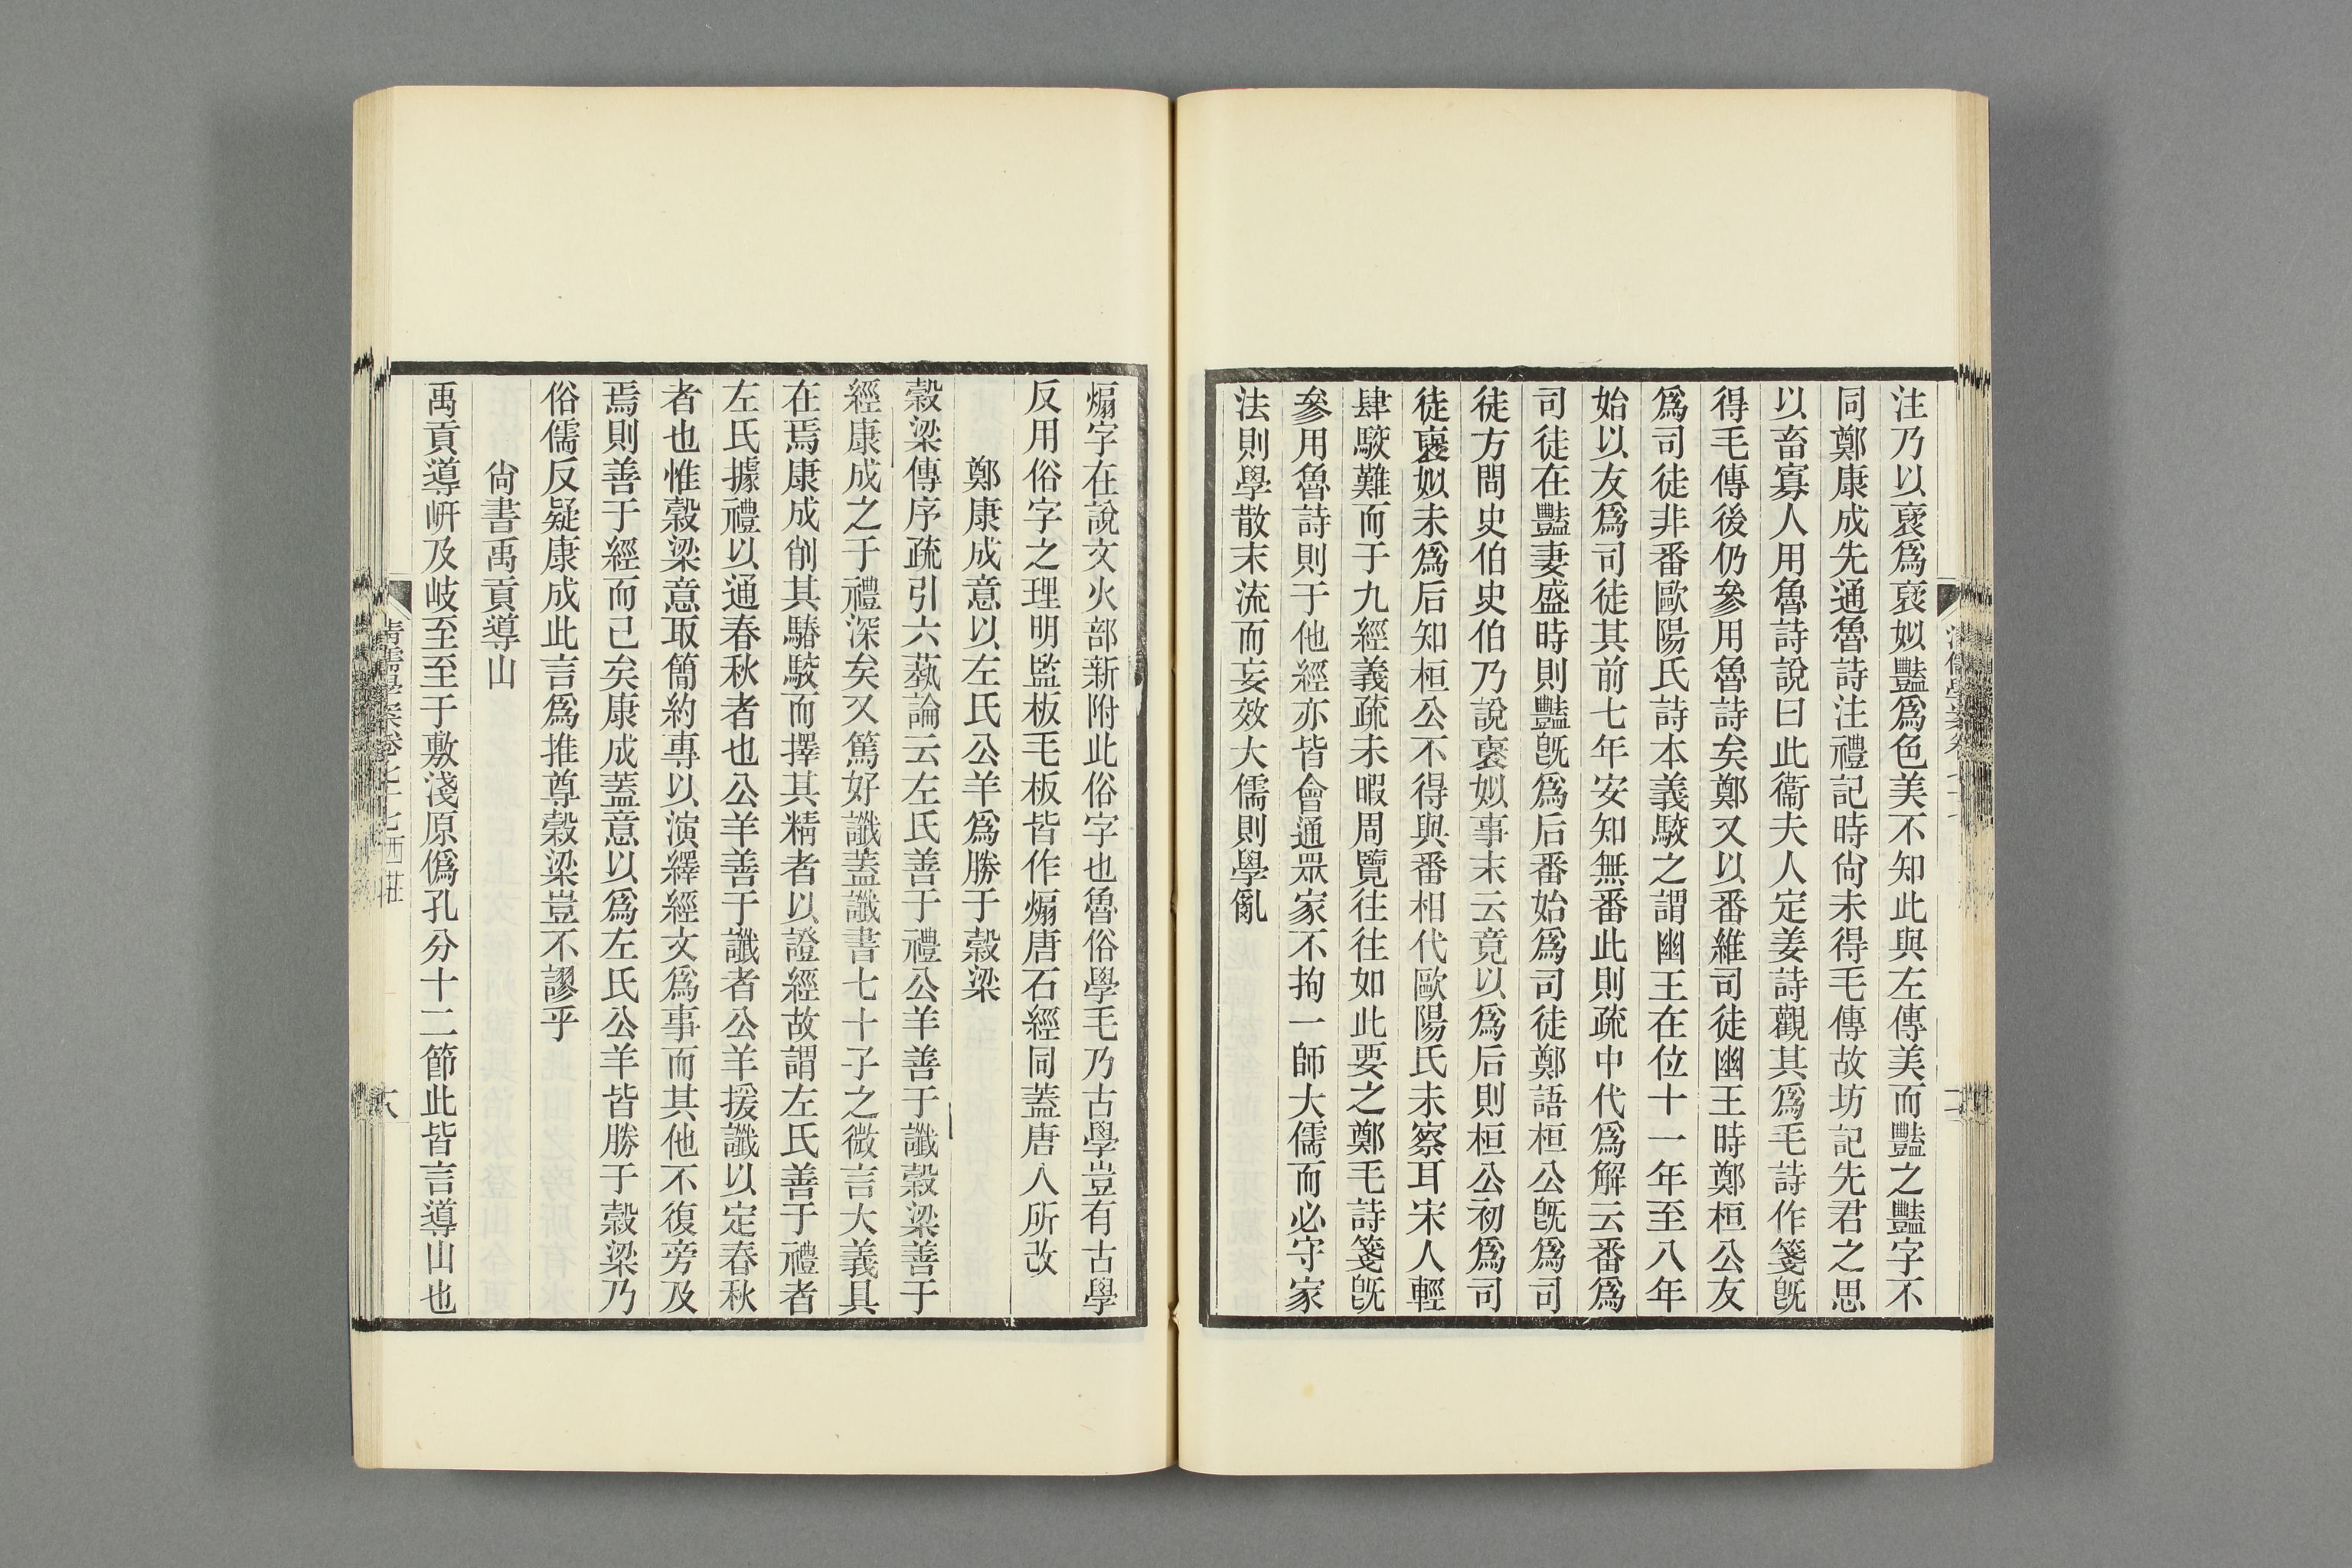 注乃以褒爲褒姒豔爲色美不知此與左傳美而豔之豔字不
同鄭康成先通魯詩注禮記時尙未得毛傳故坊記先君之思
以畜寡人用魯詩說曰此衞夫人定姜詩觀其爲毛詩作箋旣
得毛傳後仍參用魯詩矣鄭又以番維司徒幽王時鄭桓公友
爲司徒非番歐陽氏詩本義駮之謂幽王在位十一年至八年
始以友爲司徒其前七年安知無番此則疏中代爲解云番爲
司徒在豔妻盛時則豔旣爲后番始爲司徒鄭語桓公旣爲司
徒方問史伯史伯乃說褒姒事末云竟以爲后則桓公初爲司
徒襃姒未爲后知桓公不得與番相代歐陽氏未察耳宋人輕
肆駮難而于九經義疏未暇周覽往往如此要之鄭毛詩箋旣
參用魯詩則于他經亦皆會通眾家不拘一師大儒而必守家
法則學散末流而妄效大儒則學亂
煽字在說文火部新附此俗字也魯俗學毛乃古學豈有古學
反用俗字之理明監板毛板皆作煽唐石經同蓋唐人所改
鄭康成意以左氏公羊爲勝于穀梁
穀梁傳序疏引六蓺論云左氏善于禮公羊善于讖穀梁善于
經康成之于禮深矣又篤好讖蓋讖書七十子之微言大義具
在焉康成削其駤駮而擇其精者以證經故謂左氏善于禮者
左氏據禮以通春秋者也公羊善于讖者公羊援讖以定春秋
者也惟穀梁意取簡約專以演繹經文爲事而其他不復旁及
焉則善于經而已矣康成蓋意以爲左氏公羊皆勝于穀梁乃
俗儒反疑康成此言爲推尊穀梁豈不謬乎
尙書禹貢導山
禹貢導岍及岐至至于敷淺原僞孔分十二節此皆言導山也
清儒學案卷七十七西莊